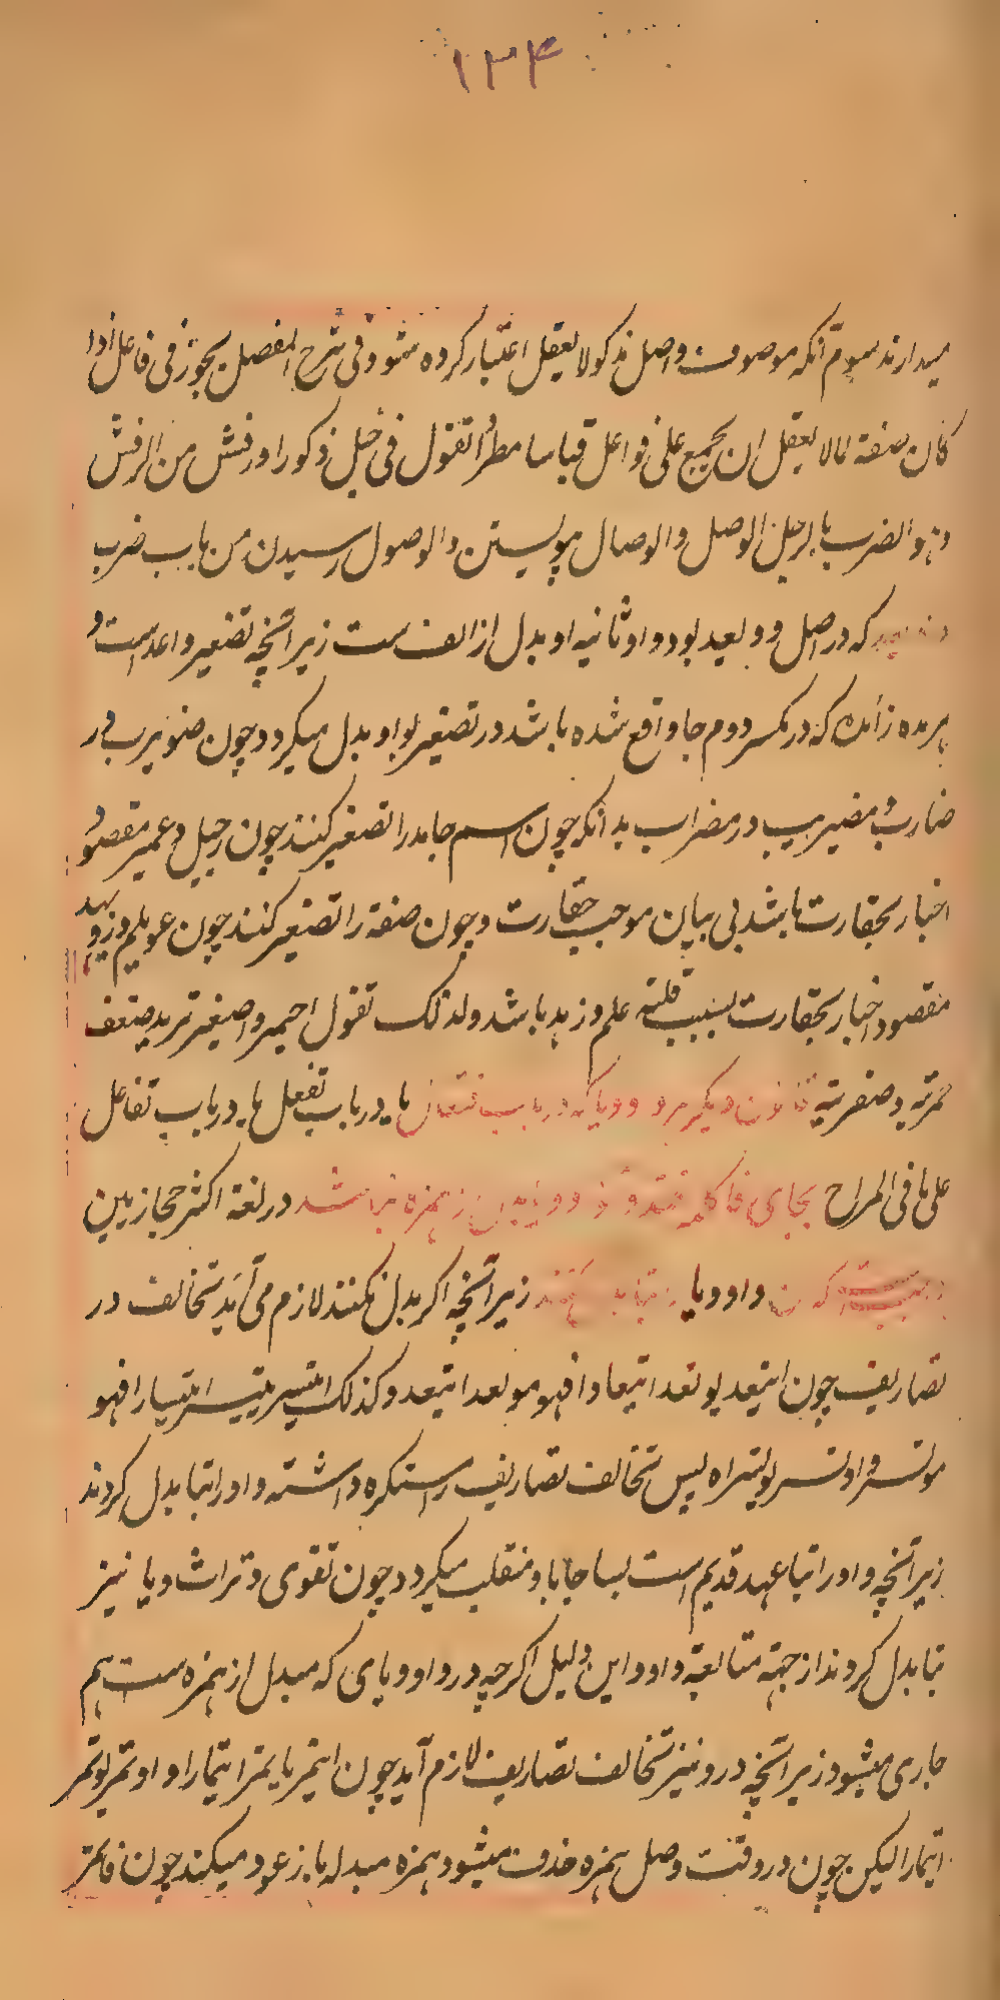 ۱۳۴
میدارند سوم آنکه موصوف واصل مذکر لا یعقل اعتبار کرده شود و فی شرح المفصل یجوز فی فاعل اذا
کان صفة لما لا یعقل ان یجمع علی فواعل قیاسا مطردا تقول فی خیل ذکور او رفش من الرفش
وهو الضرب بالرجل الوصل والوصال پیوستن والوصول رسیدن من باب ضرب
که در اصل وویعد بود واو ثانیه او بدل از الف ست زیرا نچه تصغیر واعد است و
هر مده زائده که در مکبر دوم جا واقع شده باشد در تصغیر بواو بدل میکردد چون ضویرب در
ضارب و مضیریب در مضراب بدانکه چون اسم جامد را تصغیر کنند چون رجیل و عمیر مقصود
اخبار بحقارت باشد بی بیان موجب حقارت و چون صفة را تصغیر کنند چون عویلم و زویهد
مقصود اخبار بحقارت بسبب قلته علم و زهد باشد ولذلک تقول احیمر و اصیفر ترید ضعف
حمرته و صفرته قانون دیکر هر واو ویا که در باب افتعال یا در باب تفعل یا در باب تفاعل
علی ما فی المراح بجای فا کلمه افتد و آن واو ویا بدل از همزه نباشد در لغة اکثر حجازیین
واو ویا را بتا بدل کنند زیرا نچه اکر بدل نکنند لازم می آید تخالف در
تصاریف چون ایتعد یوتعد ایتعادا فهو موتعد ایتعد وکذلک ایتسر یتیسر ایتسارا فهو
موتسر و اوتسر یوتسر اه پس تخالف تصاریف را مستکره داشته واو را بتا بدل کردند
زیرا نچه واو را بتا عهد قدیم است بسا جا بتا منقلب میکردد چون تقوی و تراث و یا نیز
بتا بدل کردند از جهة متابعة واو و این دلیل اکرچه در واو و یای که مبدل از همزه ست هم
جاری میشود زیرا نچه درو نیز تخالف تصاریف لازم آید چون ایتمر یاتمر ایتمارا و اوتمر یوتمر
ایتمارا لیکن چون در وقت وصل همزه حذف میشود همزه مبدله باز عود میکند چون فاتمر